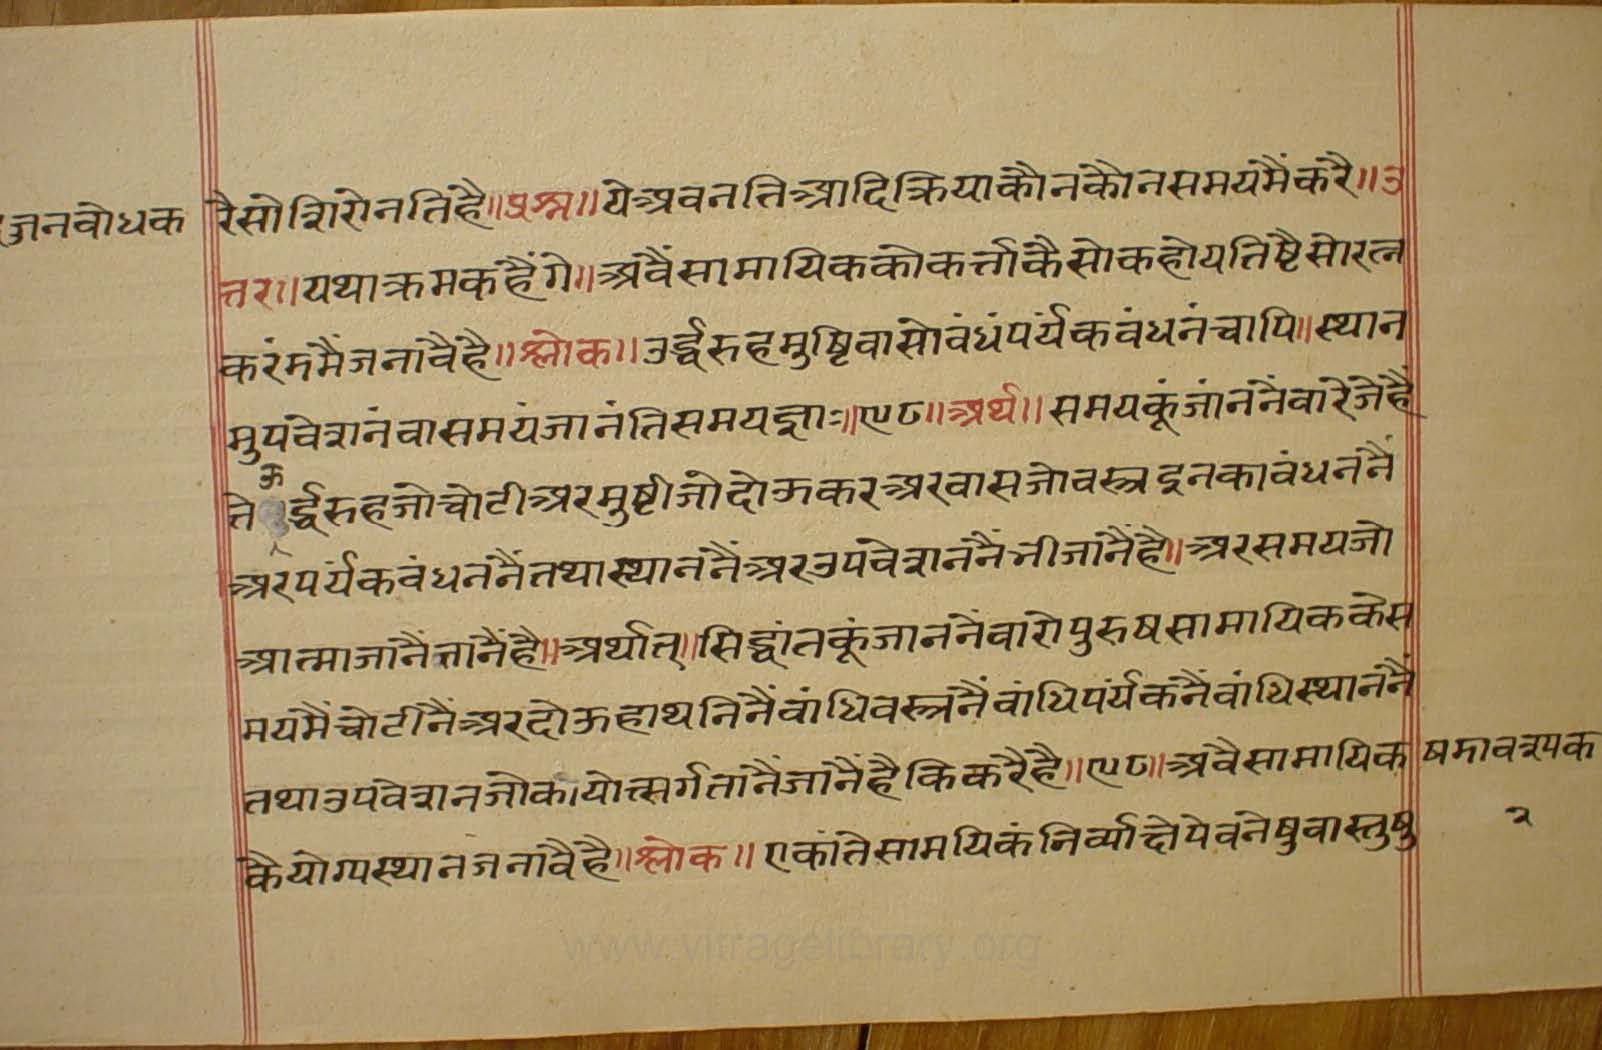 जनवोधक
रैसोशिरोनतिहै॥प्रश्न॥येअवनतिआदिक्रियाकौनकौनसमयमैंकरै॥उ
त्तर॥यथाक्रमकहैंगे॥अवैंसामायिककोकर्त्ताकैसोकहोयतिष्टैसोरत्न
करंममैंजनावैहै॥श्लोक॥उर्द्धरुहमुष्टिवासोवंधंपर्यकवंधनंचापि॥स्थान
मुपवेशनंवासमयंजानंतिसमयज्ञाः॥९८॥अर्थ॥समयकूंजांननैंवारेजेहैं
तेऊर्द्धरुहजोचोटीअरमुष्टीजोदोऊकरअरवासजोवस्त्रइनकावंधननैं
अरपर्यकवंधननैंतथास्थाननैंअरउपवेशननैंभीजांनैंहै॥अरसमयजो
आत्माजांनैंतांनैंहै॥अर्थात्॥सिद्धांतकूंजाननैंवारोपुरुषसामायिककेस
मयमैंचोटीनैंअरदोऊहाथनिनैंवांधिवस्त्रनैंवांधिपर्यकनैंवांधिस्थाननैं
तथाउपवेशनजोकायोत्सर्गतांनैंजांनैंहैकिकरैहै॥९८॥अवैसामायिक
कैयोग्यस्थानजनावैहै॥श्लोक॥एकांतेसामयिकंनिर्व्याक्षेपेवनेषुवास्तुषु
षमावश्यक
२
www.vitragelibrary.org